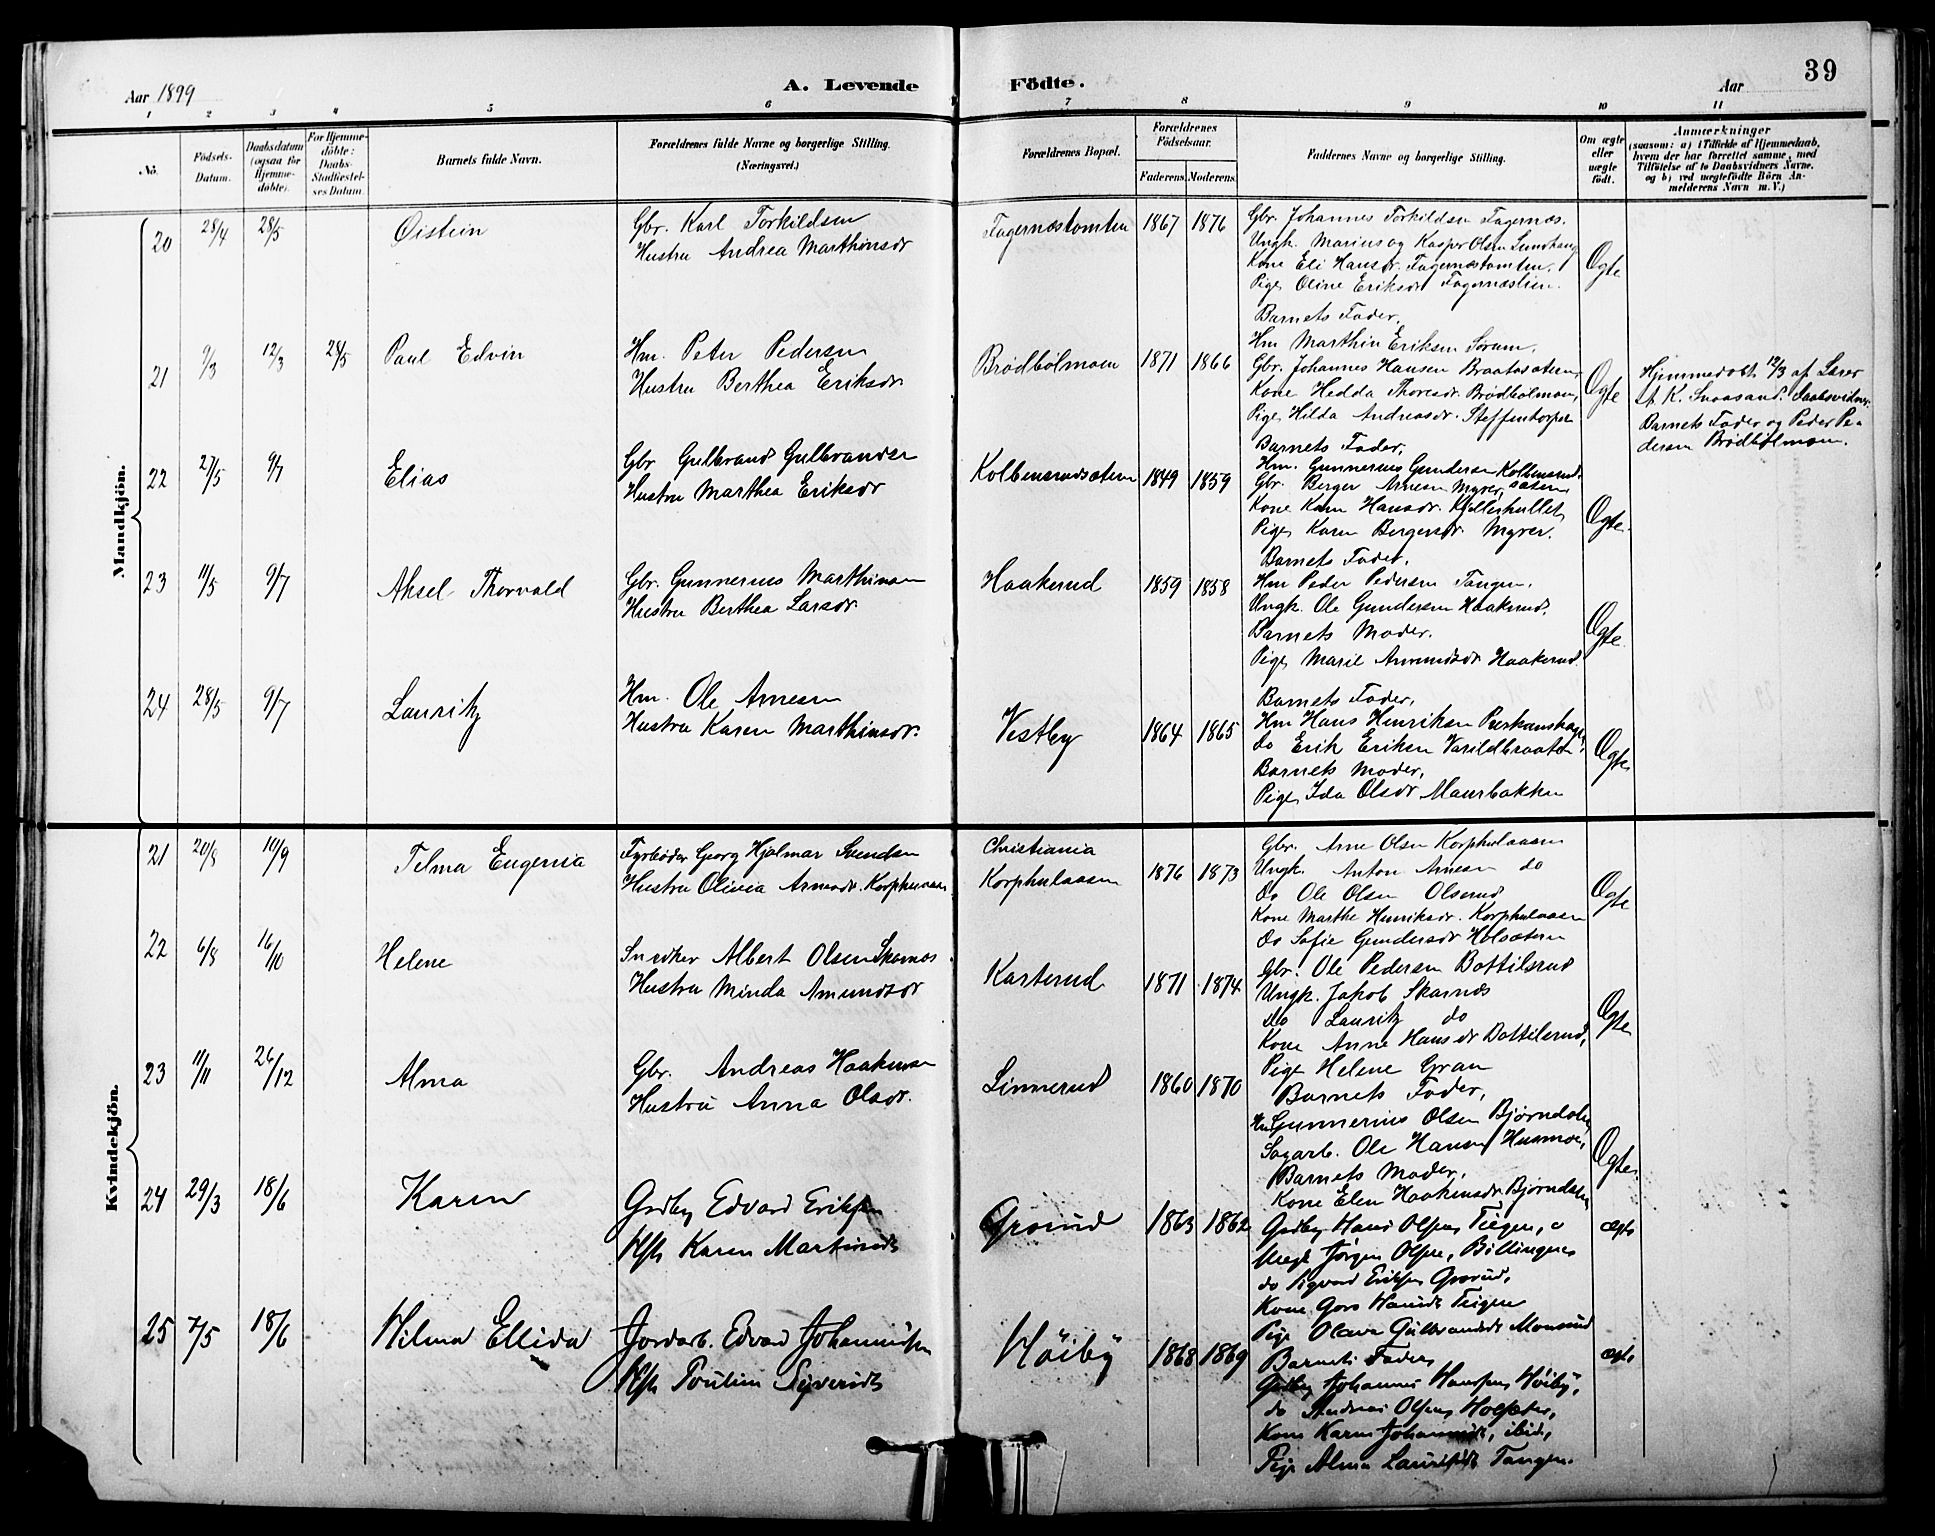 39
Aar 1899
A. Levende Födte.
Aar
1 2 3 4 5 6 7 8 9 10 11
No.
Födsels-Datum.
Daabsdatum (ogsaa for Hjemme-döbte).
For Hjemme-döbte: Daabs-Stadfæstel-ses Datum.
Barnets fulde Navn.
Forældrenes fulde Navne og borgerlige Stilling. (Næringsvei.)
Forældrenes Bopæl.
Forældrenes Födselsaar.
Faderens. Moderens.
Faddernes Navne og borgerlige Stilling.
Om ægte eller uægte födt.
Anmærkninger
(saasom: a) i Tilfælde af Hjemmedaab, hvem der har forrettet samme, med Tilföielse af to Daabsvidners Navne, og b) ved uægtefödte Börn Anmelderens Navn m. V.)
Mandkjön.
20 28/4 28/5 Øistein
Gbr. Karl Torkildsen
Hustru Andrea Marthinsdr
Fagernæstomten 1867 1876
Gbr. Johannes Torkildsen Fagernæs.
Ungk. Marius og Kasper Olsen Lundhaug
Kone Eli Hansdr. Fagernæstomten.
Pige Oline Eriksdr Fagernæslien.
Ægte
21 9/3 12/3 28/5 Paul Edvin
Hm. Peter Pedersen
Hustru Berthea Eriksdr
Brødbølmoen 1871 1866
Barnets Fader.
Hm Marthin Eriksen Sorum.
Gbr. Johannes Hansen Braatasæteren,
Kone Hedda Thoresdr. Brødbølmoen,
Pige Hilda Andreasdr. Steffentorpet
Ægte
Hjemmedøbt 12/3 af Lærer
K. Snaasand. Daabsvidner:
Barnets Fader og Peder Pe-
dersen Brødbølmoen.
22 27/5 9/7 Elias
Gbr Gulbrand Gulbrandsen
Hustru Marthea Eriksdr
Kolbensrudsætern 1849 1859
Barnets Fader,
Hm. Gunnerius Gundersen Kolbensrud-
Gbr. Berger Arnesen Myrer, sætern
Kone Karen Hansdr. Kjølleshullet,
Pige Karen Bergersdr Myrer.
Ægte.
23 11/5 9/7 Aksel Thorvald
Gbr. Gunnerius Marthinsen
Hustru Berthea Larsdr
Haakerud 1859 1858
Barnets Fader.
Hm Peder Pedersen Tangen.
Ungk. Ole Gundersen Haakerud.
Barnets Moder.
Pige Marie Amundsdr Haakerud.
Ægte.
24 28/5 9/7 Lauritz
Hm. Ole Arnesen
Hustru Karen Marthinsdr.
Vestby 1864 1865
Barnets Fader,
Hm Hans Henriksen
do Erik Eriksen Varildbraaten
Barnets Moder,
Pige Ida Olsdr Maurbakken
Ægte
Kvindekjön.
21 20/8 10/9 Telma Eugenia
Fyrbøder Georg Hjalmar Svendsen
Hustru Olivia Arnesdr. Korphulaasen
Christiania
Korphulaasen 1876 1873
Gbr. Arne Olsen Korphulaasen
Ungk. Anton Arnesen do
Do Ole Olsen Olserud
Kone Marthe Henriksdr. Korphulaasen
Do Sofie Gundersdr Holsætern
Ægte
22 6/8 16/10 Helene
Snedker Albert Olsen Skarnæs
Hustru Minda Amundsdr
Karterud 1871 1874
Gbr. Ole Pedersen Bottilsrud
Ungk. Jakob Skarnæs
do Lauritz do
Kone Anne Hansdr Bottilsrud,
Pige Helene Gran
Ægte
23 11/11 26/12 Alma
Gbr. Andreas Haakensen
Hustru Anna Olsdr.
Linnerud 1860 1870
Barnets Fader,
Hm Gunnerius Olsen Bjørndalen
Sagarb. Ole Hansen Husmoen,
Barnets Moder,
Kone Elen Haakensdr. Bjørndalen
Ægte.
24 29/3 18/6 Karen
Grdbr Edvard Eriksen
Hst Karen Martinsdt
Grorud 1863 1862
Grdbr Hans Olsen Teigen,
Ungk Jørgen Olsen, Billingnes
do Sigvard Eriksen Grorud,
Kone Goro Hansdt Teigen
Pige Olava Gulbrandsdt Monsrud
ægte
25 7/5 18/6 Hilma Ellida
Jordarb. Edvard Johannesen
Hst Pouline Syversdt
Høiby 1868 1869
Barnets Fader
Grdbr Johannes Hansen Høiby,
do Andreas Olsen Holsæter,
Kone Karen Johannesdt, ibid.,
Pige Alma Lauritsdt Tangen.
ægte